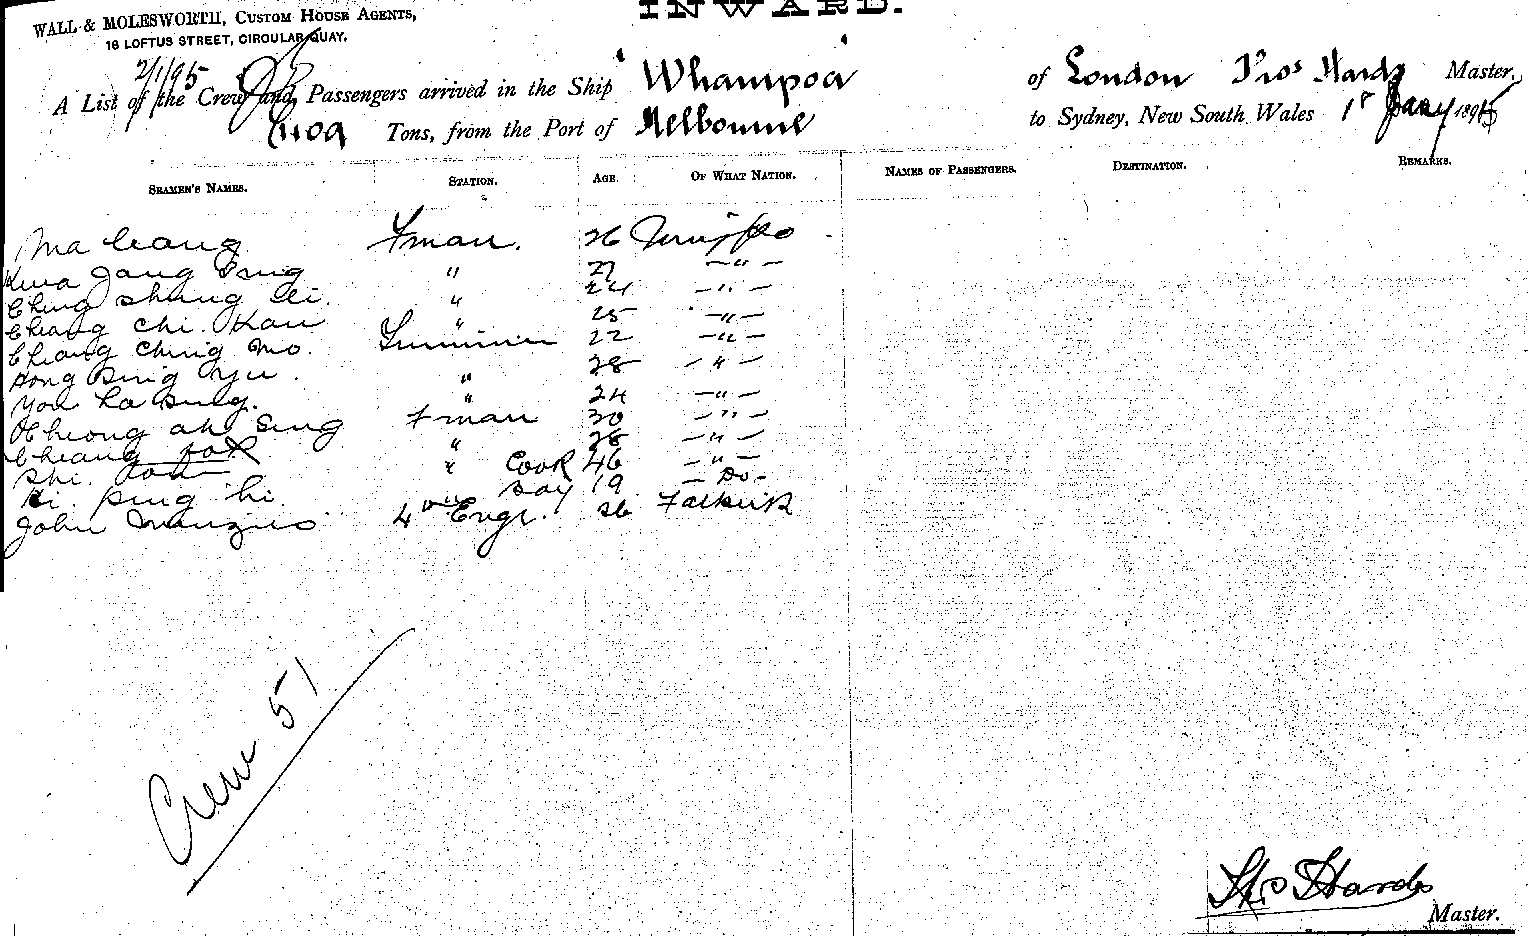 INWARD.
WALL & MOLESWORTH, CUSTOM HOUSE AGENTS,
16 LOFTUS STREET, CIRCULAR QUAY.
2/1/95
A List of the Crew and Passengers arrived in the Ship "Whampoa" of London Thos Hards Master,
1109 Tons, from the Port of Melbourne to Sydney, New South Wales 1st Jany 1895
SEAMEN'S NAMES. STATION. AGE. OF WHAT NATION. NAMES OF PASSENGERS. DESTINATION. REMARKS.
Ma Cang Fman. 26 Ningpo
Kwa Jang Sing " 27 — " —
Ching Shung Lei. " 24 — " —
Cheang Chi. Kan " 25 — " —
Cheang Ching Mo. Trimmer 22 — " —
Hong Sing Yu. " 28 — " —
You Ka Sung. " 24 — " —
Cheong ah Sing Fman 30 — " —
Cheang " 28 — " —
Shi " Cook 46 — " —
Ki. Ping hi " Boy 19 — Do —
John Menzies 4th Engr. 26 Falkirk
Crew 51
Thos Hards
Master.